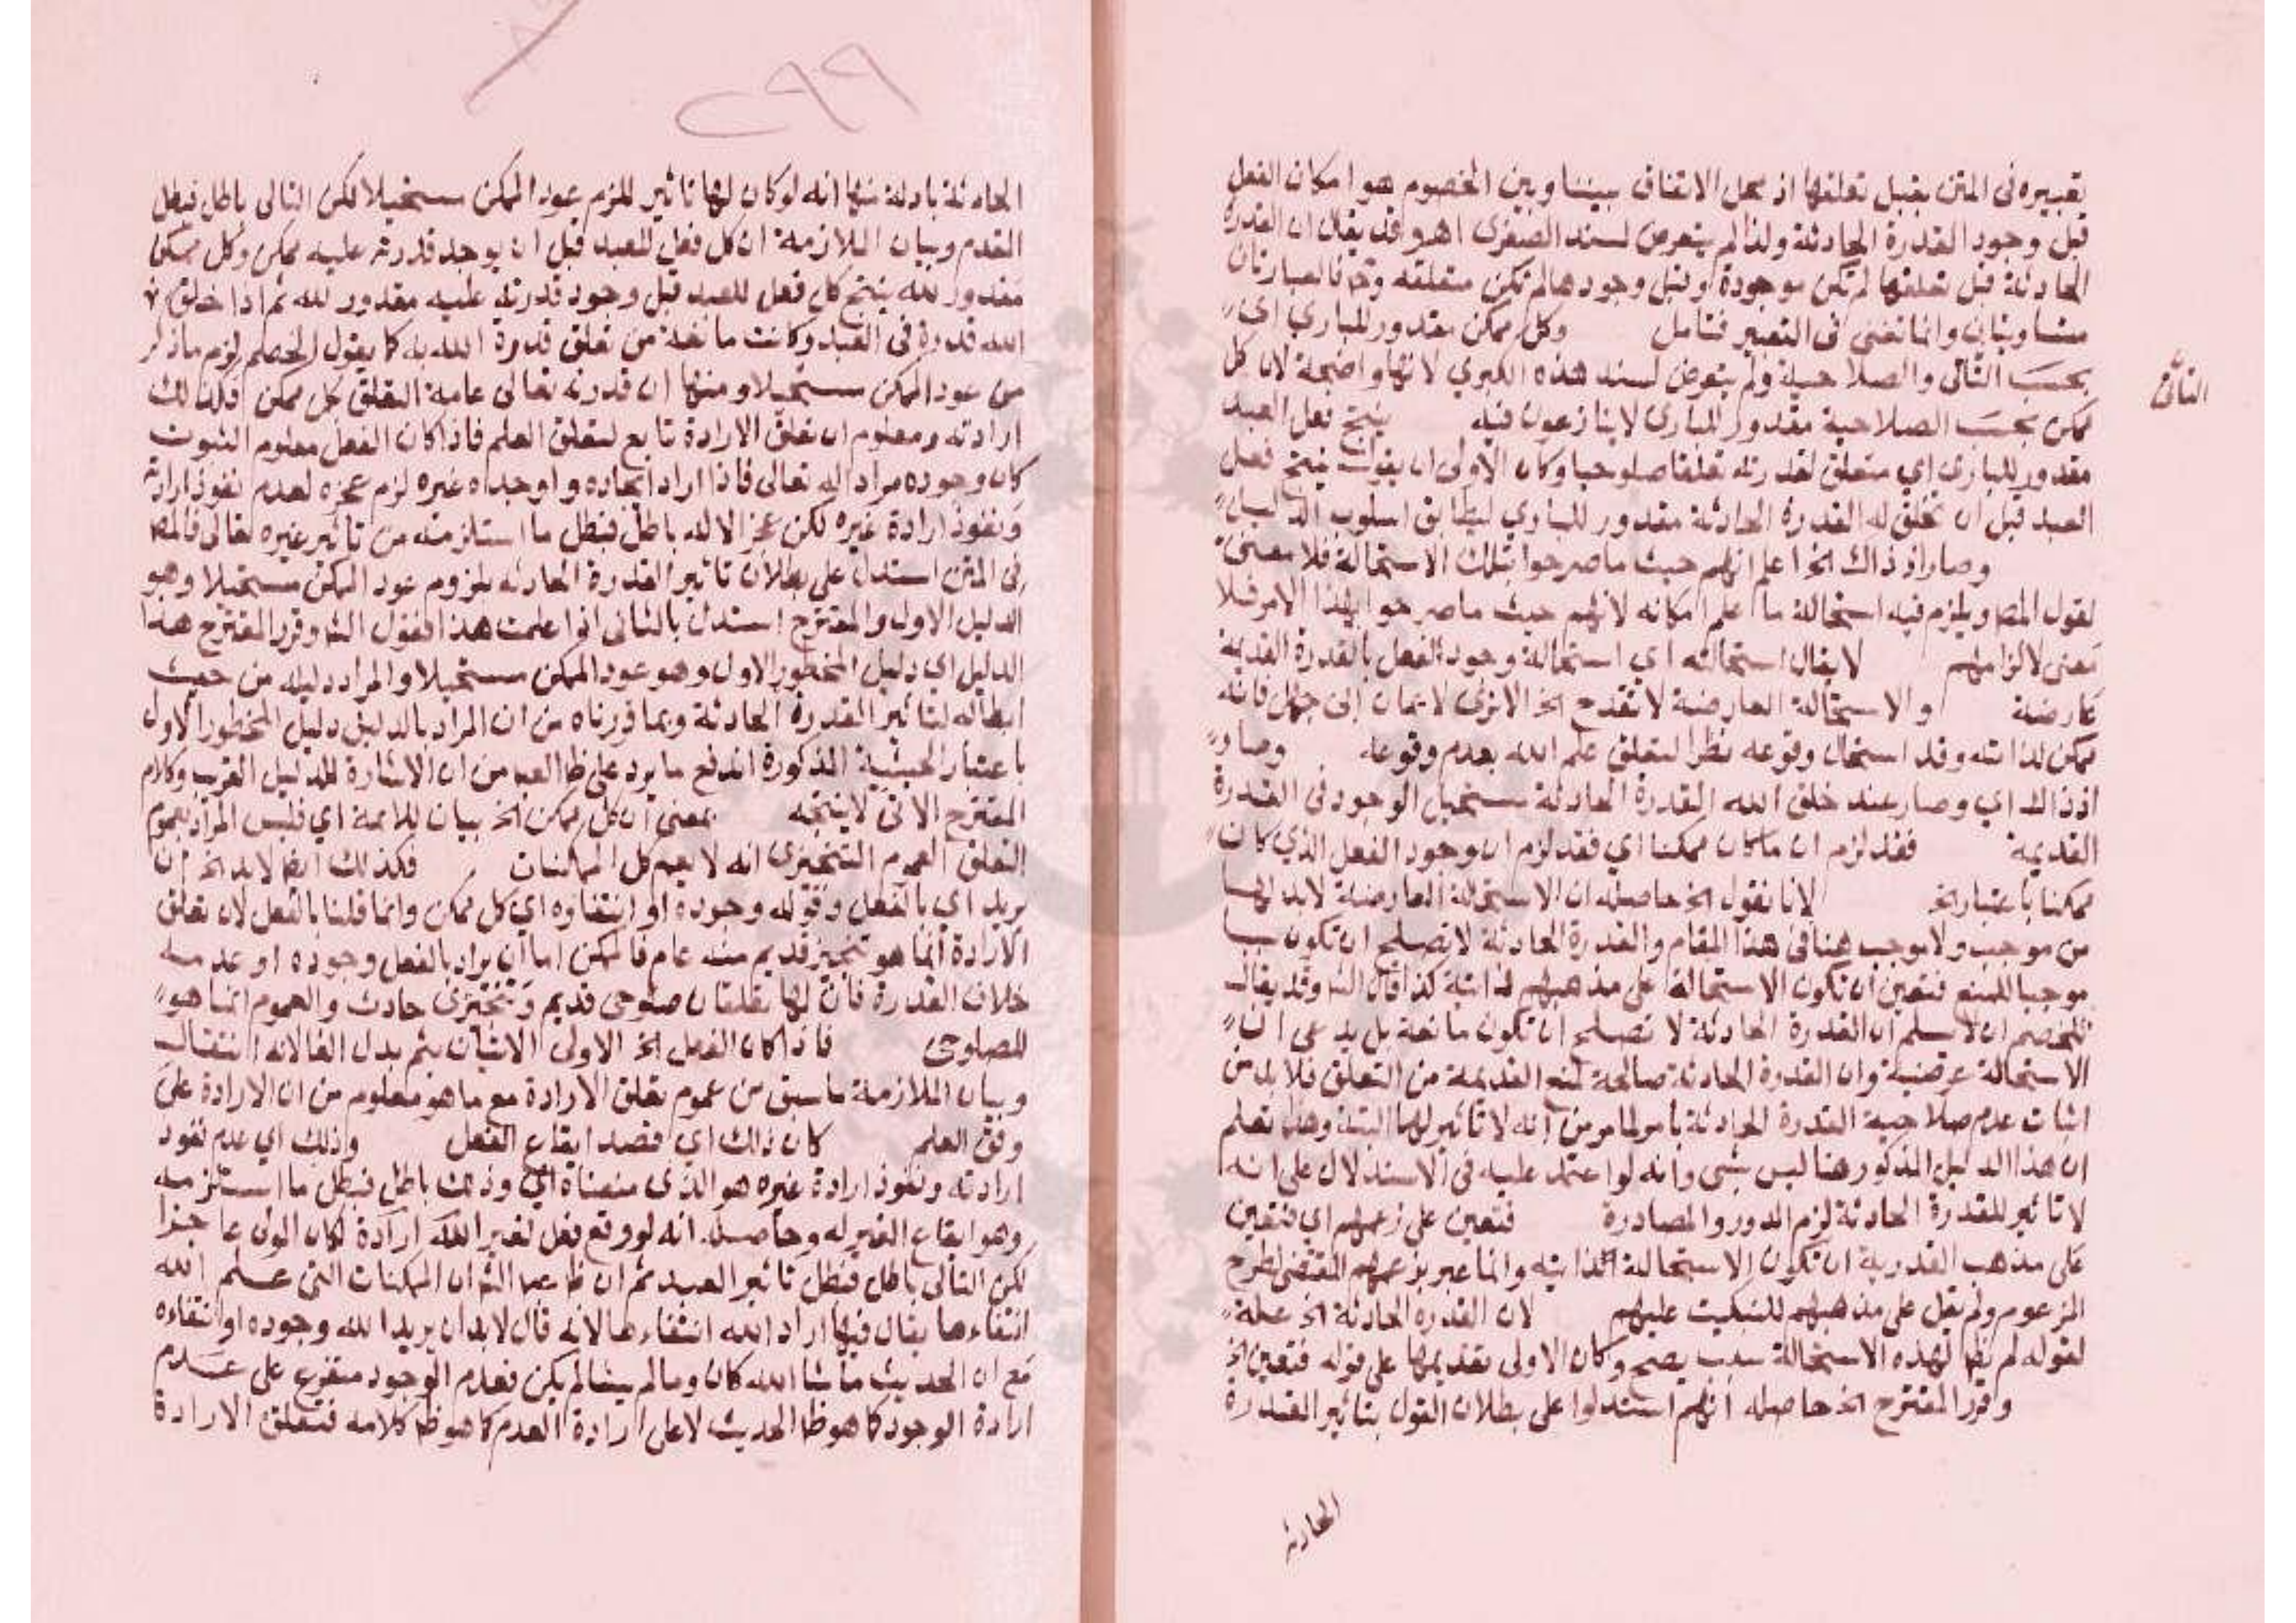 تعبيره فى المتن بقبل تعلقها اذ محل الاتفاق بيننا وبين الخصوم هو امكان الفعل
قبل وجود القدرة الحادثة ولذا لم يتعرض لسند الصغرى اهـ وقد يقال ان القدرة
الحادثة قبل تعلقها لم تكن موجودة وقبل وجودها لم تكن متعلقه فالعبارتان
متساويتان وانما تفنن فى التعبير فتامل وكل ممكن مقدور للباري اى
بحسب التأتى والصلاحية ولم يتعرض لسند هذه الكبري لانها واضحة لان كل
ممكن بحسب الصلاحية مقدور للبارى لا ينازعون فيه ينتج فعل العبد
مقدور للبارى اي متعلق لقدرته تعلقا صلوحيا وكان الاولى ان يقول ينتج فعل
العبد قبل ان تخلق له القدرة الحادثة مقدور للباري ليطابق اسلوب الدليل
وصار اذ ذاك الخ اعلم انهم حيث ما صرحوا بتلك الاستحالة فلا معنى
لقول المص ويلزم فيه استحالة ما علم امكانه لانهم حيث ما صرحوا بهذا الامر فلا
معنى لالزامهم لا يقال استحالته اي استحالة وجود الفعل بالقدرة القديمة
عارضة والاستحالة العارضة لا تقدح الخ الا ترى لايمان ابى جهل فانه
ممكن لذاته وقد استحال وقوعه نظرا لتعلق علم الله بعدم وقوعه وصار
اذ ذاك اي وصار عند خلق الله القدرة الحادثة مستحيل الوجود فى القدرة
القديمة فقد لزم ان ما كان ممكنا اي فقد لزم ان وجود الفعل الذي كان
ممكنا باعتبار الخ لانا نقول الخ حاصله ان الاستحالة العارضة لابد لها
من موجب ولا موجب هنا فى هذا المقام والقدرة الحادثة لا تصلح ان تكون سببا
موجبا للمنع فتعين ان تكون الاستحالة على مذهبهم ذاتية كذا قال الش وقد يقال
للخصم ان لا سلم ان القدرة الحادثة لا تصلح ان تكون مانعة بل يدعى ان
الاستحالة عرضية وان القدرة الحادثة صالحة لمنع القديمة من التعلق فلابد من
اثبات عدم صلاحية القدرة الحادثة بأمر لما مر من انه لا تاثير لها البتة وهذا تعلم
ان هذا الدليل المذكور هنا ليس بشى وانه لو اعتمد عليه فى الاستدلال على انه
لا تاثير للقدرة الحادثة لزم الدور والمصادرة فتعين على زعمهم اي فتعين
على مذهب القدرية ان تكون الاستحالة ذاتية وانما عبر بزعمهم المقتضى لطرح
المزعوم ولم يقل على مذهبهم للتبكيت عليهم لان القدرة الحادثة الخ علة
لقوله لم يظ لهذه الاستحالة سبب يصح وكان الاولى تقديمها على قوله فتعين الخ
وقرر المقترح الخ حاصله انهم استدلوا على بطلان القول بتاثير القدرة
الحادثة
الحادثة بادلة منها انه لو كان لها تاثير للزم عود الممكن مستحيلا لكن التالى باطل فبطل
المقدم وبيان الملازمة ان كل فعل للعبد قبل ان يوجد قدرته عليه ممكن وكل ممكن
مقدور لله ينتج كل فعل للعبد قبل وجود قدرته عليه مقدور لله ثم اذا خلق
الله قدرة فى العبد وكانت مانعة من تعلق قدرة الله به كما يقول الخصم لزم ما ذكر
من عود الممكن مستحيلا ومنها ان قدرته تعالى عامة التعلق بكل ممكن وكذلك
ارادته ومعلوم ان تعلق الارادة تابع لتعلق العلم فاذا كان الفعل معلوم الثبوت
كان وجوده مرادا له تعالى فاذا اراد ايجاده واوجده غيره لزم عجزه لعدم نفوذ ارادته
ونفوذ ارادة غيره لكن عجز الاله باطل فبطل ما استلزمته من تاثير غيره تعالى فالمص
فى المتن استدل على بطلان تاثير القدرة الحادثه بلزوم عود الممكن مستحيلا وهو
الدليل الاول والمقترح استدل بالثانى اذا علمت هذا فقول الش وقرر المقترح هذا
الدليل اي دليل المحظور الاول وهو عود الممكن مستحيلا والمراد دليله من حيث
ابطاله لتاثير القدرة الحادثة وبما قررناه من ان المراد بالدليل دليل المحظور الاول
باعتبار الحيثية المذكورة اندفع ما يرد على ظا العبا من ان الاشارة للدليل القريب وكلام
المقترح الاتى لا ينتجه بمعنى ان كل ممكن الخ بيان للاعمة اي فليس المراد بعموم
التعلق العموم التنجيزى انه لا يعم كل الممكنات فكذلك ايضا لابد الخ ان
يريد اي بالفعل وقوله وجوده او انتفاوه اي كل ممكن وانما قلنا بالفعل لان تعلق
الارادة انما هو تنجيز قديم منه عام فالممكن اما ان يراد بالفعل وجوده او عدمه
خلاف القدرة فان لها تعلقان صلوحى قديم وتنجيزى حادث والعموم انما هو
للصلوحى فاذا كان الفعل الخ الاولى الاتيان بثم بدل الفا لانه انتقال
وبيان الملازمة ما سبق من عموم تعلق الارادة مع ما هو معلوم من ان الارادة على
وفق العلم كان ذالك اي قصد ايقاع الفعل وذلك اي عدم نفوذ
ارادته ونفوذ ارادة غيره هو الذى باطل فبطل ما استلزمه
وهو ايقاع الغير له وحاصله انه لو وقع فعل لغير الله ارادة لكان المولى عاجزا
لكن التالى باطل فبطل تاثير العبد ثم ان ظ عبا الش ان الممكنات التى علم الله
انتفاءها يقال فيها اراد الله انتفاءها لانه قال لابد ان يريد الله وجوده او انتفاءه
مع ان الحديث ما شا الله كان وما لم يشا لم يكن فعدم الوجود متفرع على عدم
ارادة الوجود كما هو ظا الحديث لا على ارادة العدم كما هو ظا كلامه فتعلق الارادة